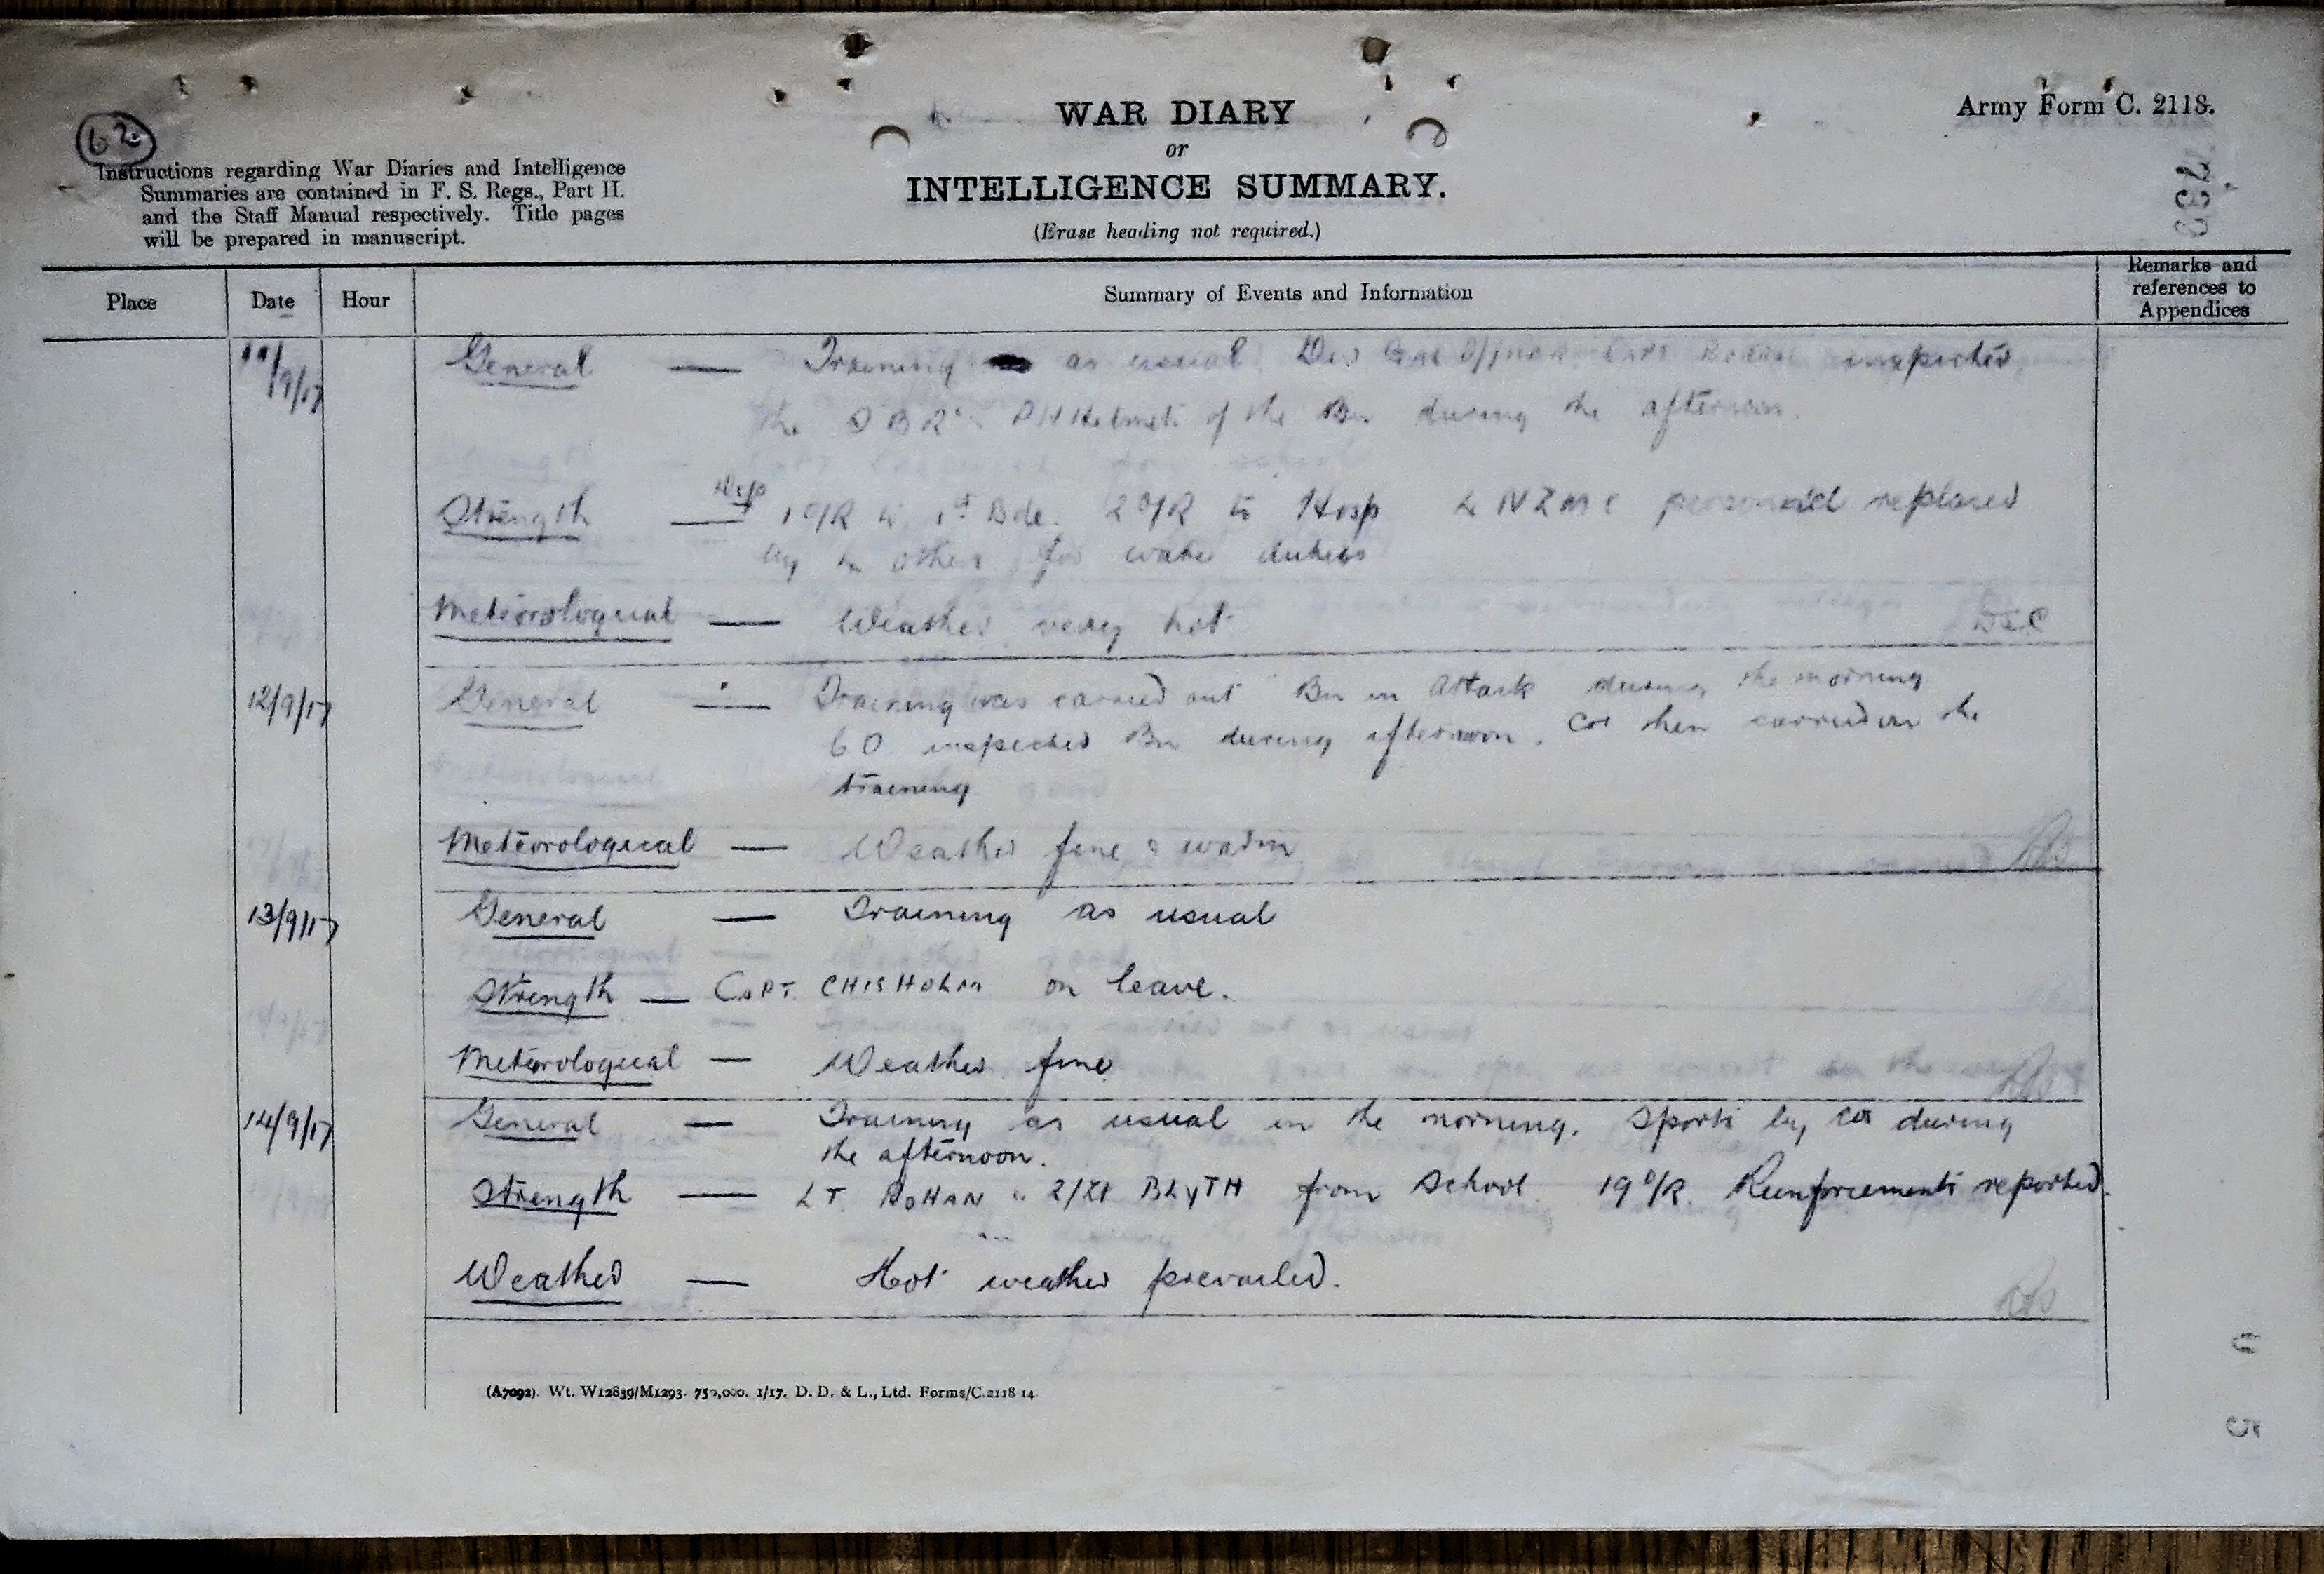 62
WAR DIARY
or
INTELLIGENCE SUMMARY.
(Erase heading not required.)
Army Form C. 2118.
Instructions regarding War Diaries and Intelligence
Summaries are contained in F. S. Regs., Part II.
and the Staff Manual respectively. Title pages
will be prepared in manuscript.
Place Date Hour Summary of Events and Information Remarks and
references to
Appendices
11/9/17 General — Training as usual Div Gas Officer Capt inspected
the SBR's PH Helmets of the Bn during the afternoon.
Strength — 1 O/R to 1st Bde. 2 O/R to Hosp 4 NZMC personnel replaced
by 4 others for water duties
Meteorological — Weather very hot
12/9/17 General — Training was carried out Bn in Attack during the morning
CO inspected Bn during afternoon. Cos then carried on the
training
Meteorological — Weather fine & warm
13/9/17 General — Training as usual
Strength — CAPT. CHISHOLM on leave.
Meteorological — Weather fine
14/9/17 General — Training as usual in the morning. Sports by cos during
the afternoon.
Strength — LT. ROHAN " 2/Lt BLYTH from School 19 O/R Reinforcements reported.
Weather — Hot weather prevailed.
(A7092). Wt. W12839/M1293. 750,000. 1/17. D. D. & L., Ltd. Forms/C.2118 14